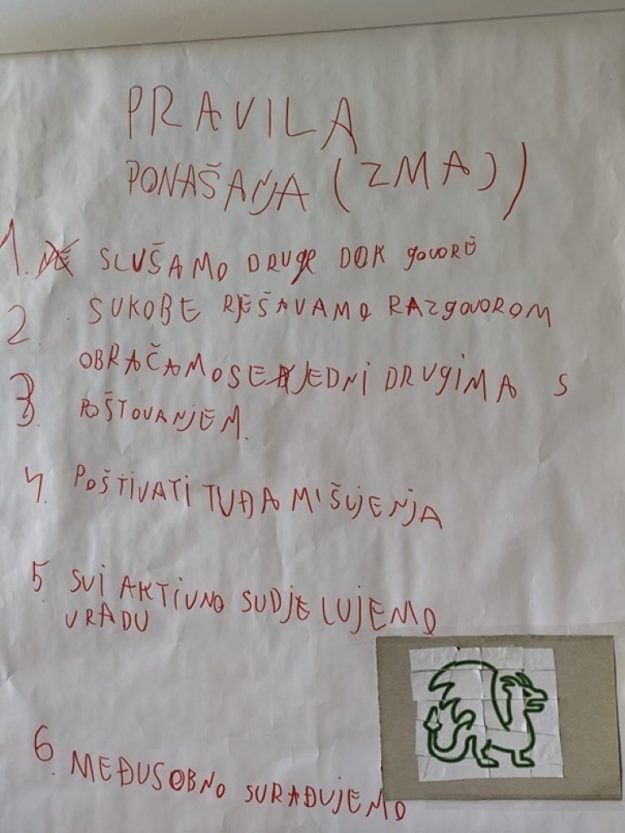 PRAVILA
PONAŠANJA (ZMAJ)
1. SLUŠAMO DRUGE DOK govorE
2. SUKOBE RJEŠAVAMO RAZgovOROM
OBRAČAMO SE JEDNI DRUGIMA S
3. POŠTOVANJEM.
4. POŠTIVATI TUĐA MIŠLJENJA
5. SVI AKTIVNO SUDJELUJEMO
U RADU
6. MEĐUSOBNO SURAĐUJEMO